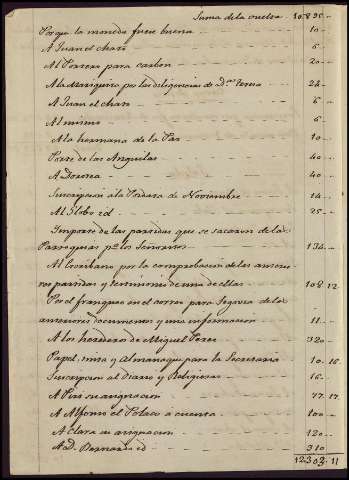 Suma de la vuelta 10.896
Porque la moneda fuese buena 10
A Juan el charo 6
Al Portero para carbon 20
A la demandadera por las diligencias de Dª Teresa 24
A Juan el charo 6
Al mismo 6
A la hermana de la Paz 10
Porte de las Anguilas 40
A Dorotea 40
Suscripcion a la Postura de Noviembre 14
Al Globo id 25
Importe de las partidas que se sacaron de las
Parroquias pª los Señoritos 134
Al Escribano por la comprobacion de las anterio-
res partidas y testimonio de una de ellas 108 12
Por el franqueo en el correo para Segovia de los
anteriores documentos y una informacion 11
A los herederos de Miguel Perez 320
Papel, tinta y Almanaque para la Secretaria 10 16
Suscripcion al Diario y Religiosas 16
A Pias su asignacion 77 17
A Alfonso el Polaco a cuenta 100
A Clara su asignacion 120
A D. Bernardo id 310
12303 11